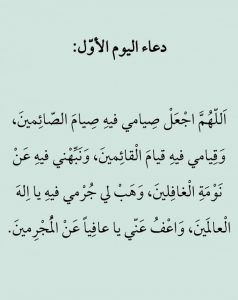 دعاء اليوم الأوّل:
اَللّهُمَّ اجْعَلْ صِيامي فيهِ صِيامَ الصّائِمينَ،
وَقِيامي فيهِ قِيامَ القائِمينَ، وَنَبِّهْني فيهِ عَنْ
نَوْمَةِ الغافِلينَ، وَهَبْ لي جُرْمي فيهِ يا اِلهَ
العالَمينَ، وَاعْفُ عَنّي يا عافِياً عَنْ الُمُجْرِمينَ.